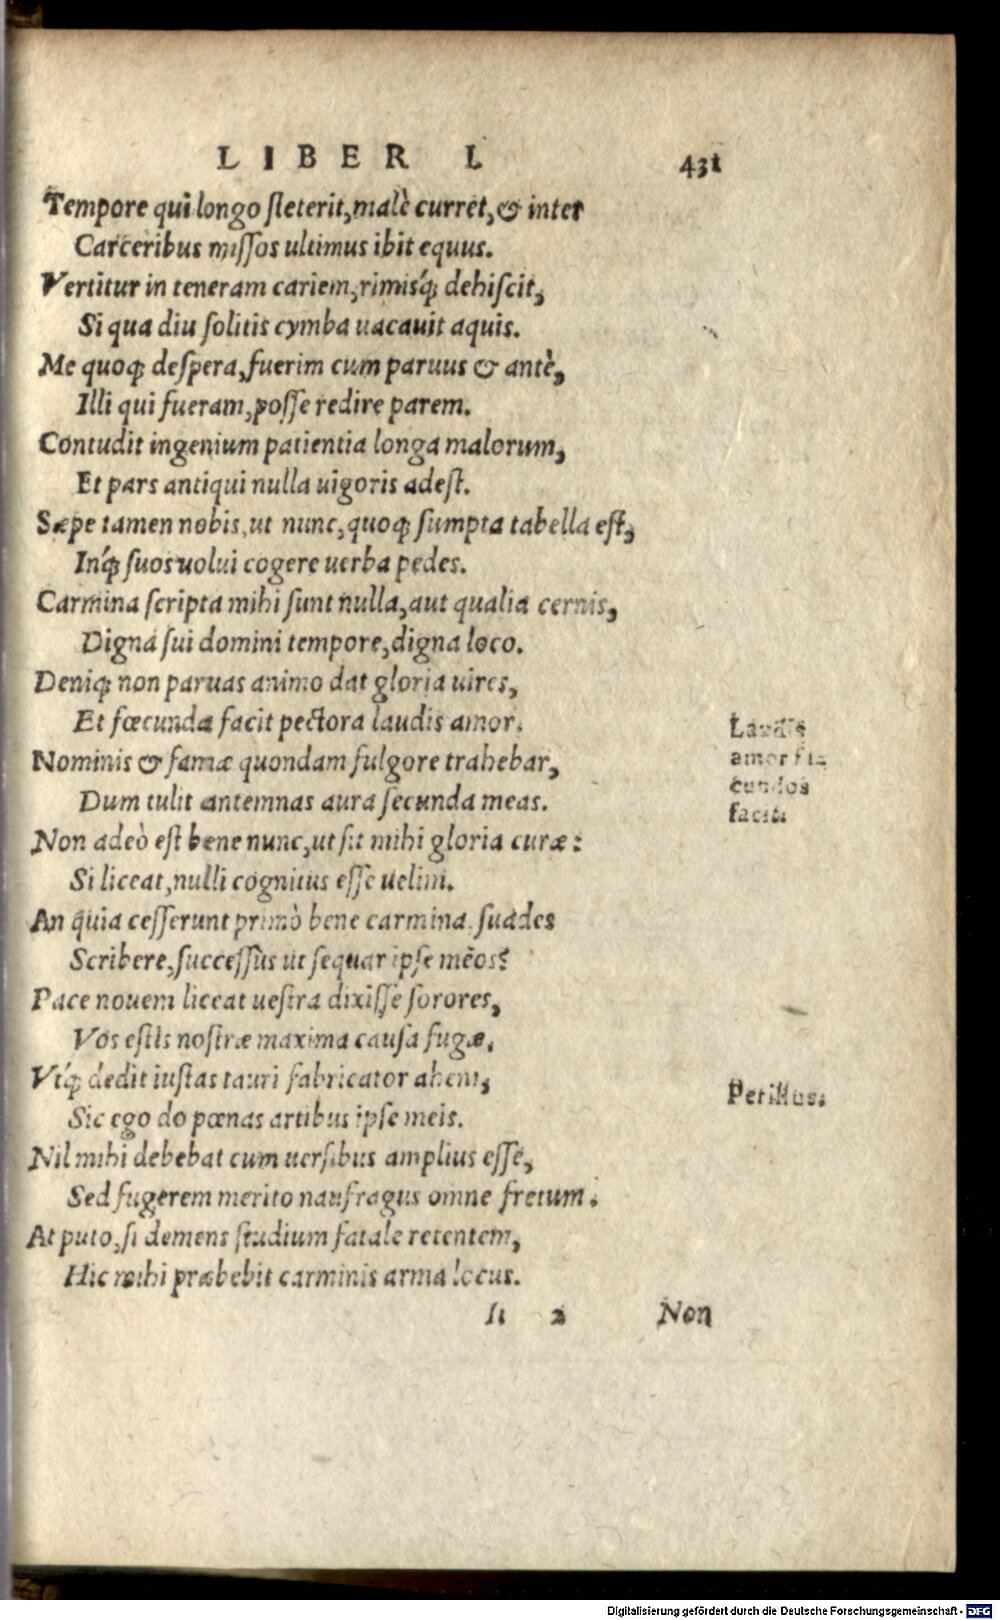 LIBER I. 431
Tempore qui longo steterit, malè curret, & inter
Carceribus missos ultimus ibit equus.
Vertitur in teneram cariem, rimisq́; dehiscit,
Si qua diu solitis cymba uacauit aquis.
Me quoq; despera, fuerim cum paruus & antè,
Illi qui fueram, posse redire parem.
Contudit ingenium patientia longa malorum,
Et pars antiqui nulla uigoris adest.
Sæpe tamen nobis, ut nunc, quoq; sumpta tabella est,
Inq́; suos uolui cogere uerba pedes.
Carmina scripta mihi sunt nulla, aut qualia cernis,
Digna sui domini tempore, digna loco.
Deniq; non paruas animo dat gloria uires,
Et fœcunda facit pectora laudis amor.
Laudis
Nominis & famæ quondam fulgore trahebar,
amor fœ
cundos
Dum tulit antemnas aura secunda meas.
facit.
Non adeò est bene nunc, ut sit mihi gloria curæ:
Si liceat, nulli cognitus esse uelim.
An quia cesserunt primò bene carmina. suades
Scribere, successus ut sequar ipse meos?
Pace nouem liceat uestra dixisse sorores,
Vos estis nostræ maxima causa fugæ.
Vtq́; dedit iustas tauri fabricator aheni,
Perillus.
Sic ego do pœnas artibus ipse meis.
Nil mihi debebat cum uersibus amplius esse,
Sed fugerem merito naufragus omne fretum.
At puto, si demens studium fatale retentem,
Hic mihi præbebit carminis arma locus.
Ii 2 Non
Digitalisierung gefördert durch die Deutsche Forschungsgemeinschaft - DFG